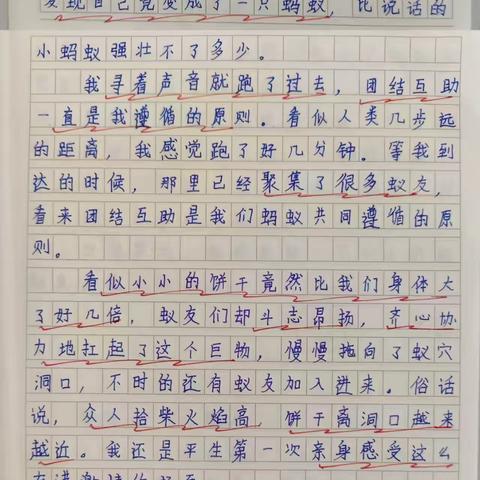 发现自己竟变成了一只蚂蚁，比说话的
小蚂蚁强壮不了多少。
我寻着声音就跑了过去，团结互助
一直是我遵循的原则。看似人类几步远
的距离，我感觉跑了好几分钟。等我到
达的时候，那里已经聚集了很多蚁友，
看来团结互助是我们蚂蚁共同遵循的原
则。
看似小小的饼干竟然比我们身体大
了好几倍，蚁友们却斗志昂扬，齐心协
力地扛起了这个巨物，慢慢拖向了蚁穴
洞口，不时的还有蚁友加入进来。俗话
说，众人拾柴火焰高，饼干离洞口越来
越近。我还是平生第一次亲身感受这么